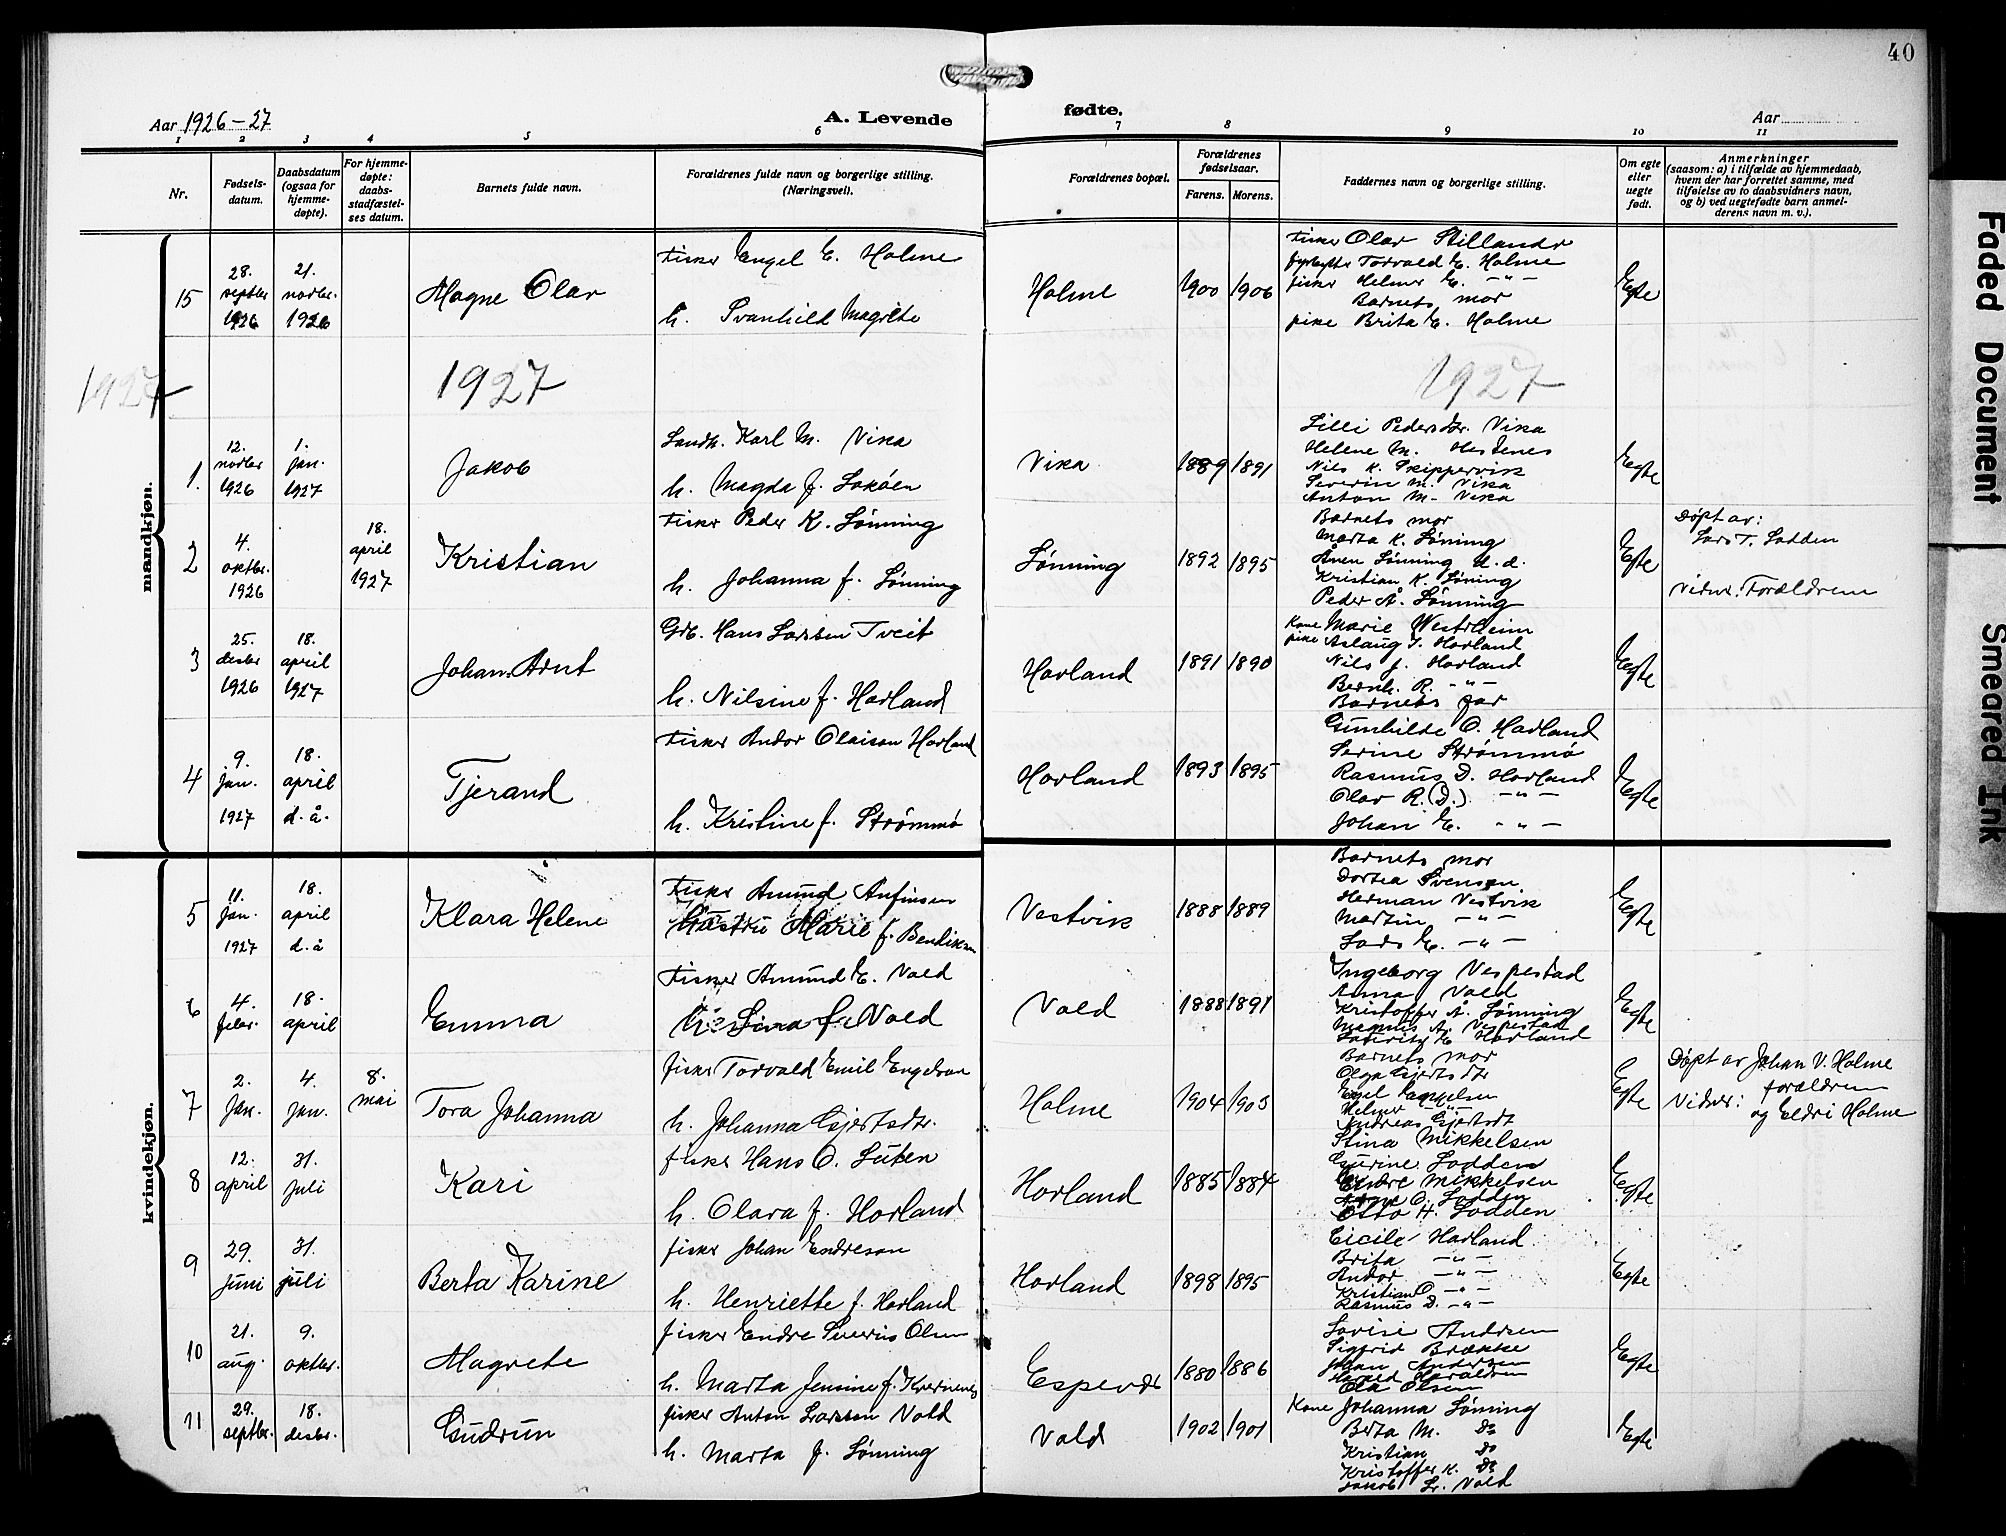 40
Aar 1926-27
A. Levende fødte.
Aar
1 2 3 4 5 6 7 8 9 10 11
Nr.
Fødsels-
datum.
Daabsdatum
(ogsaa for
hjemme-
døpte).
For hjemme-
døpte:
daabs-
stadfæstel-
ses datum.
Barnets fulde navn.
Forældrenes fulde navn og borgerlige stilling.
(Næringsvei).
Forældrenes bopæl.
Forældrenes
fødselsaar.
Farens. Morens.
Faddernes navn og borgerlige stilling.
Om egte
eller
uegte
født.
Anmerkninger
(saasom: a) i tilfælde av hjemmedaab,
hvem der har forrettet samme, med
tilføielse av to daabsvidners navn,
og b) ved uegtefødte barn anmel-
derens navn m. v.).
mandkjøn.
15
28.
septbr
1926
21.
novbr.
1926
Magne Olav
Fisker Engel E. Holme
h. Svanhild Magrete
Holme
1900 1906
Fisker Olav Stillandr
Torvald E. Holme
fisker Helmer E. -"-
Barnets mor
pike Brita E. Holme
Egte
1927
1927
1927
1.
12.
novbr
1926
1.
jan.
1927
Jakob
Landh. Karl M. Vika
h. Magda f. Lokøen
Vika
1889 1891
Lilli Pedersdr. Vika
Helene M. Hestenes
Nils K. Skippervik
Severin M. Vika
Anton M. Vika
Egte
2
4.
oktbr.
1926
18.
april
1927
Kristian
Fisker Peder K. Lønning
h. Johanna f. Lønning
Lønning
1892 1895
Barnets mor
Marta K. Lønning
Ånen Lønning d. d.
Kristian K. Lønning
Peder Å. Lønning
Egte
Døpt av:
Lars T. Lodden
Vidner: Forældrene
3
25.
desbr
1926
18.
april
1927
Johan Arnt
Grb. Hans Larssen Tveit
h. Nilsine f. Hovland
Hovland
1891 1890
Kone Marie Westrheim
pike Aslaug J. Hovland
Nils J. Hovland
Bernh. R. -"-
Barnets far
Egte
4
9.
jan.
1927
18.
april
d. å.
Tjerand
Fisker Andor Olaison Hovland
h. Kristine f. Strømmø
Hovland
1893 1895
Gunhilde O. Hovland
Serine Strømmø
Rasmus D. Hovland
Olav R. (D.) -"-
Johan E. -"-
Egte
kvindekjøn.
5
11.
jan.
1927
18.
april
d. å
Klara Helene
Fisker Amund Anfinsen
Hustru Marie f. Bendiksen
Vestvik
1888 1889
Barnets mor
Dortea Svensen
Herman Vestvik
Martin -"-
Lars E. -"-
Egte
6
4.
febr.
18.
april
Emma
Fisker Amund E. Vold
h. Lina f. Vold
Vold
1888 1891
Ingeborg Vespestad
Anna Vold
Kristoffer Å. Lønning
Magnus A. Vespestad
Lauritz E. Hovland
Egte
7
2.
jan.
4.
jan.
8.
mai
Tora Johanna
fisker Torvald Emil Engelsen
h. Johanna Gjertsdtr.
Holme
1904 1903
Barnets mor
Olga Gjertsdtr
Helmer -"-
Andreas Gjertsdt
Egte
Døpt av Johan V. Holme
Vidner: forældrene
og Eldri Holme
8
12.
april
31.
juli
Kari
fisker Hans O. Luten
h. Olava f. Hovland
Hovland
1885 1884
Stina Mikkelsen
Gurine Lodden
Endre Mikkelsen
O. Lodden
Otto H. Lodden
Egte
9
29.
juni
31.
juli
Berta Karine
fisker Johan Endreson
h. Henriette f. Hovland
Hovland
1898 1895
Cicilie Hovland
Brita -"-
Andor -"-
Kristian O. -"-
Rasmus D. -"-
Egte
10
21.
aug.
9.
oktbr.
Magrete
fisker Endre Severius Olsen
h. Marta Jensine f. Kvernenes
Espevær
1880 1886
Lovise Andrsen
Sigfrid Brække
Johan Andersen
Harald Haraldsen
Ola Olsen
Egte
11
29.
septbr.
18.
desbr.
Gudrun
fisker Anton Larssen Vold
h. Marta f. Lønning
Vold
1902 1901
Kone Johanna Lønning
Berta M. Do
Kristian Do
Kristoffer K. Do
Jakob L. Vold
Egte
Faded Document
Smeared Ink